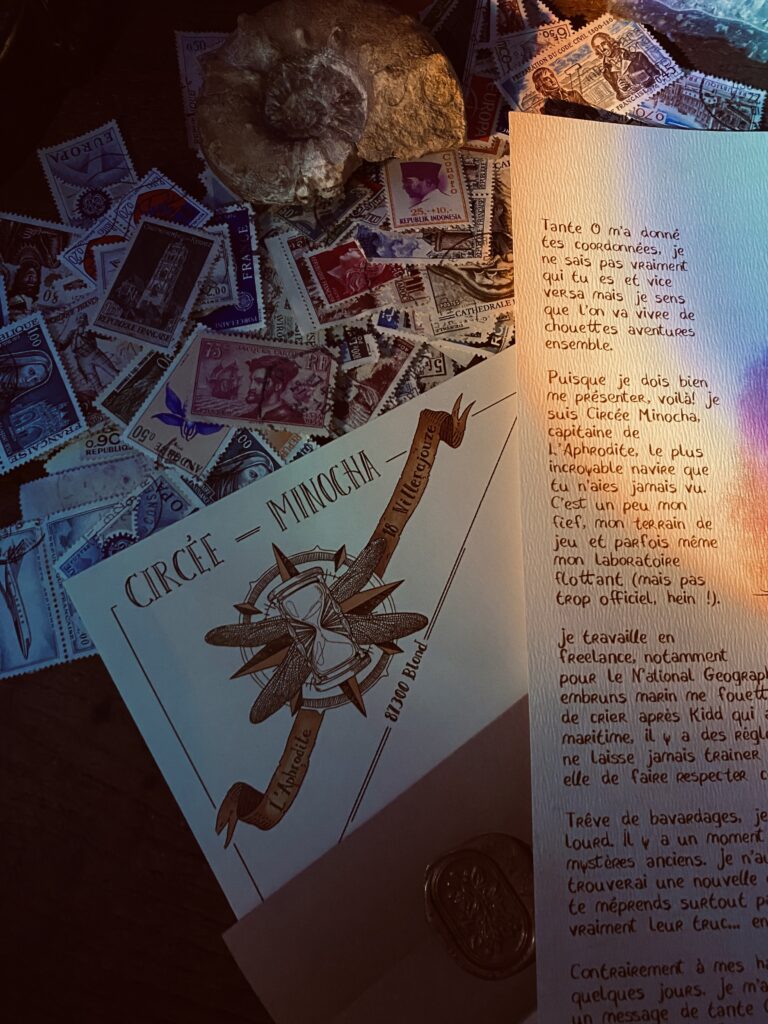 EUROPA
FRANCE
1,00
FRANÇAISE
RÉPUBLIQUE FRANÇAISE
75
0,50
Conefo
25.-+10.-
REPUBLIK INDONESIA
CATHÉDRALE
CIRCÉE – MINOCHA –
18 Villerajouze
87300 Blond
L'Aphrodite
Tante O m'a donné
tes coordonnées, je
ne sais pas vraiment
qui tu es et vice
versa mais je sens
que l'on va vivre de
chouettes aventures
ensemble.
Puisque je dois bien
me présenter, voilà! je
suis Circée Minocha,
capitaine de
L'Aphrodite, le plus
incroyable navire que
tu n'aies jamais vu.
C'est un peu mon
fief, mon terrain de
jeu et parfois même
mon laboratoire
flottant (mais pas
trop officiel, hein !).
je travaille en
freelance, notamment
pour le National Geograp
embruns marin me fouett
de crier après Kidd qui a
maritime, il y a des règle
ne laisse jamais traîner
elle de faire respecter c
Trêve de bavardages, je
lourd. Il y a un moment
mystères anciens. je n'au
trouverai une nouvelle
te méprends surtout pa
vraiment leur truc... en
Contrairement à mes ha
quelques jours. je m'a
un message de tante